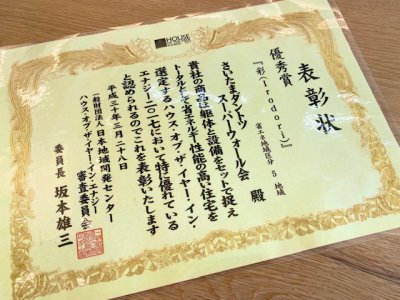 HOUSE
表彰状
優秀賞
『彩（Irodori）』
省エネ地域区分 5 地域
さいたまダイトソ
スーパーウォール会 殿
貴社の商品は躯体と設備をセットで捉え
トータルとして省エネルギー性能の高い住宅を
選定するハウス・オブ・ザ・イヤー・イン・
エナジー二〇一七において特に優れている
と認められるのでこれを表彰いたします
平成三十年三月二十八日
一般財団法人 日本地域開発センター
ハウス・オブ・ザ・イヤー・イン・エナジー
審査委員会
委員長 坂本雄三